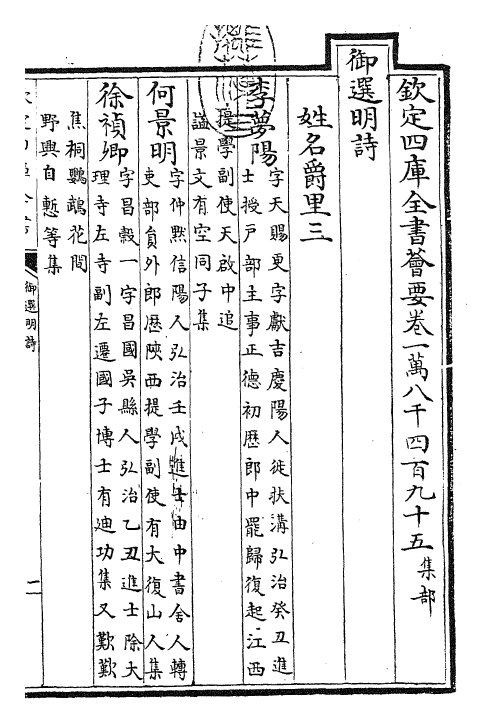 欽定四庫全書薈要卷一萬八千四百九十五 集部
御選明詩
姓名爵里三
李夢陽
字天賜更字獻吉慶陽人徙扶溝弘治癸丑進
士授戶部主事正德初歷郎中罷歸復起江西
提學副使天啟中追
諡景文有空同子集
何景明
字仲默信陽人弘治壬戌進士由中書舍人轉
吏部員外郎歷陝西提學副使有大復山人集
徐禎卿
字昌穀一字昌國吳縣人弘治乙丑進士除大
理寺左寺副左遷國子博士有迪功集又歎歎
焦桐鸚鵡花間
野興自慙等集
欽定四庫全書
御選明詩
一